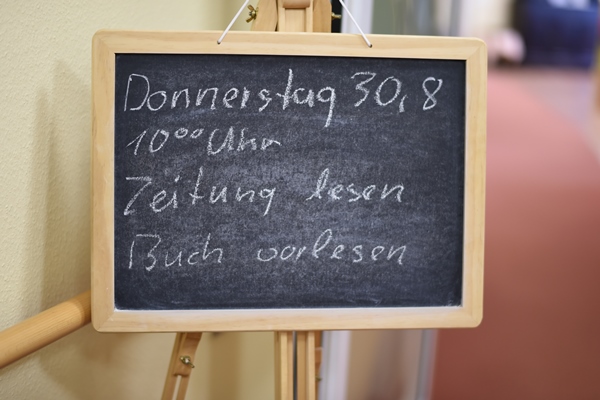 Donnerstag 30,8
10⁰⁰ Uhr
Zeitung lesen
Buch vorlesen